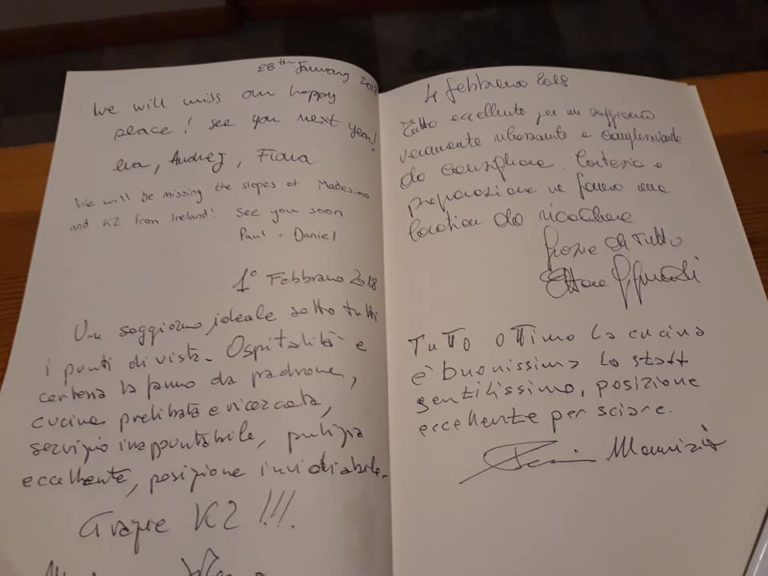 28th January 2018
We will miss our happy
place! See you next year!
Eva, Andrej, Fiona
We will be missing the slopes of Madesimo
and K2 from Ireland! See you soon
Paul - Daniel
1° Febbraio 2018
Un soggiorno ideale sotto tutti
i punti di vista. Ospitalità e
cortesia la fanno da padrone,
cucina prelibata e ricercata,
servizio inappuntabile, pulizia
eccellente, posizione invidiabile.
Grazie K2 !!!.
4 febbraio 2018
Tutto eccellente per un soggiorno
veramente rilassante e
da consigliare. Cortesia e
preparazione ne fanno una
location da ricordare
Grazie di Tutto
Ettore
Tutto ottimo la cucina
è buonissima lo staff
gentilissimo, posizione
eccellente per sciare.
Maurizio